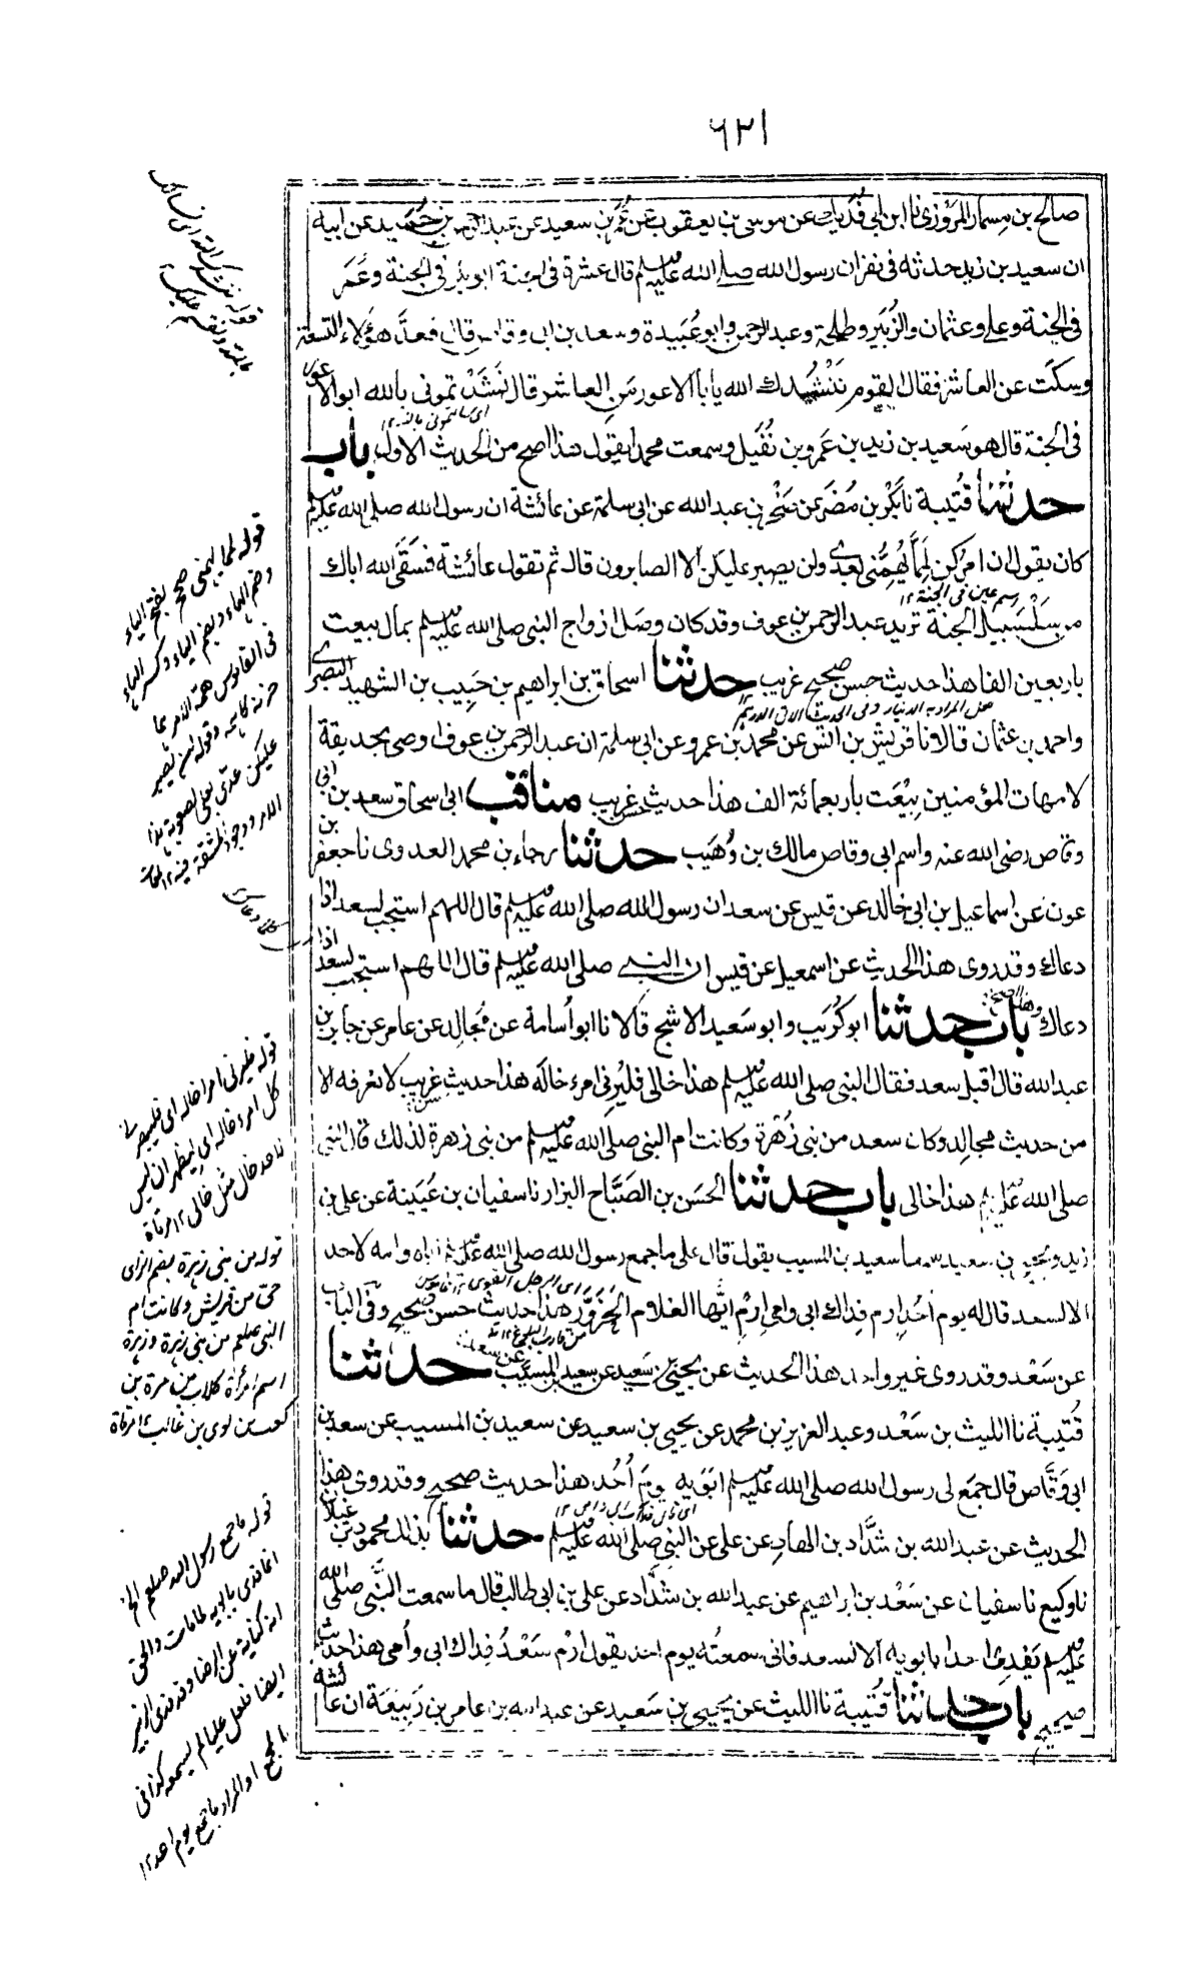 ٦٢١
صالح بن مسمار المروزي نا ابن ابي فديك عن موسى بن يعقوب عن عمر بن سعيد عن عبد الرحمن بن حميد عن ابيه
ان سعيد بن زيد حدثه في نفر ان رسول الله صلى الله عليه وسلم قال عشرة في الجنة ابو بكر في الجنة وعمر
في الجنة وعلي وعثمان والزبير وطلحة وعبد الرحمن وابو عبيدة وسعد بن ابي وقاص قال فعد هؤلاء التسعة
وسكت عن العاشر فقال القوم ننشدك الله يا ابا الاعور من العاشر قال نشدتموني بالله ابو الاعور
في الجنة قال هو سعيد بن زيد بن عمرو بن نفيل وسمعت محمدا يقول هذا اصح من الحديث الاول باب
حدثنا قتيبة نا بكر بن مضر عن صخر بن عبد الله عن ابي سلمة عن عائشة ان رسول الله صلى الله عليه وسلم
كان يقول ان امركن لمما يهمني بعدي ولن يصبر عليكن الا الصابرون قال ثم تقول عائشة فسقى الله اباك
من سلسبيل الجنة تريد عبد الرحمن بن عوف وقد كان وصل ازواج النبي صلى الله عليه وسلم بمال بيعت
باربعين الفا هذا حديث حسن صحيح غريب حدثنا اسحاق بن ابراهيم بن حبيب بن الشهيد البصري
واحمد بن عثمان قالا نا قريش بن انس عن محمد بن عمرو عن ابي سلمة ان عبد الرحمن بن عوف اوصى بحديقة
لامهات المؤمنين بيعت باربعمائة الف هذا حديث حسن غريب مناقب ابي اسحاق سعد بن ابي
وقاص رضى الله عنه واسم ابي وقاص مالك بن وهيب حدثنا رجاء بن محمد العدوي نا جعفر بن
عون عن اسماعيل بن ابي خالد عن قيس عن سعد ان رسول الله صلى الله عليه وسلم قال اللهم استجب لسعد اذا
دعاك وقد روى هذا الحديث عن اسمعيل عن قيس ان النبي صلى الله عليه وسلم قال اللهم استجب لسعد اذا
دعاك وهذا اصح باب حدثنا ابو كريب وابو سعيد الاشج قالا نا ابو اسامة عن مجالد عن عامر عن جابر بن
عبد الله قال اقبل سعد فقال النبي صلى الله عليه وسلم هذا خالي فليرني امرء خاله هذا حديث حسن غريب لا نعرفه الا
من حديث مجالد وكان سعد من بني زهرة وكانت ام النبي صلى الله عليه وسلم من بني زهرة لذلك قال النبي
صلى الله عليه وسلم هذا خالي باب حدثنا الحسن بن الصباح البزار نا سفيان بن عيينة عن علي بن
زيد ويحيى بن سعيد سمعا سعيد بن المسيب يقول قال علي ما جمع رسول الله صلى الله عليه وسلم اباه وامه لاحد
الا لسعد قال له يوم احد ارم فداك ابي وامي ارم ايها الغلام الحزور هذا حديث حسن صحيح وفي الباب
عن سعد وقد روى غير واحد هذا الحديث عن يحيى بن سعيد عن سعيد بن المسيب عن سعد حدثنا
قتيبة نا الليث بن سعد وعبد العزيز بن محمد عن يحيى بن سعيد عن سعيد بن المسيب عن سعد بن
ابي وقاص قال جمع لي رسول الله صلى الله عليه وسلم ابويه يوم احد هذا حديث صحيح وقد روى هذا
الحديث عن عبد الله بن شداد بن الهاد عن علي عن النبي صلى الله عليه وسلم حدثنا بذلك محمود بن غيلان
نا وكيع نا سفيان عن سعد بن ابراهيم عن عبد الله بن شداد عن علي بن ابي طالب قال ما سمعت النبي صلى الله
عليه وسلم يفدي احدا بابويه الا لسعد فاني سمعته يوم احد يقول ارم سعد فداك ابي وامي هذا حديث
صحيح باب حدثنا قتيبة نا الليث عن يحيى بن سعيد عن عبد الله بن عامر بن ربيعة ان عائشة
قوله لمما يهمني صح بفتح الياء
وضم الهاء وبضم الياء وكسر الهاء
في القاموس همه الامر هما
حزنه كاهمه وقوله لن يصبر
قوله فليرني امرأ خاله اي فليبصرني
كل امرء خاله اي ليظهر ان ليس
لاحد خال مثل خالي ١٢ مرقاة
قوله من بني زهرة بضم الزاى
حى من قريش وكانت ام
النبي صلعم من بني زهرة وزهرة
اسم امرأة كلاب بن مرة بن
كعب بن لوى بن غالب ١٢ مرقاة
قوله ما جمع رسول الله صلعم الخ